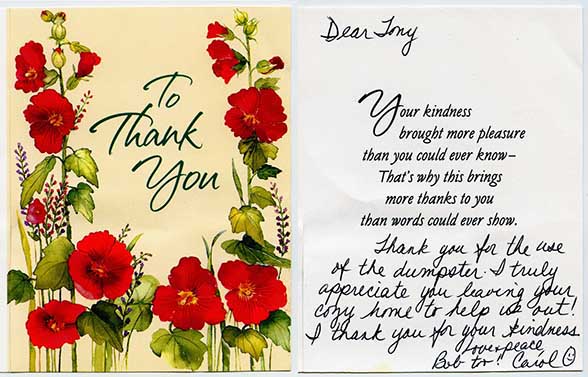 To
Thank
You
Dear Tony
Your kindness
brought more pleasure
than you could ever know–
That's why this brings
more thanks to you
than words could ever show.
Thank you for the use
of the dumpster. I truly
appreciate you leaving your
cozy home to help us out!
I thank you for your kindness
Love & peace
Bob Carol